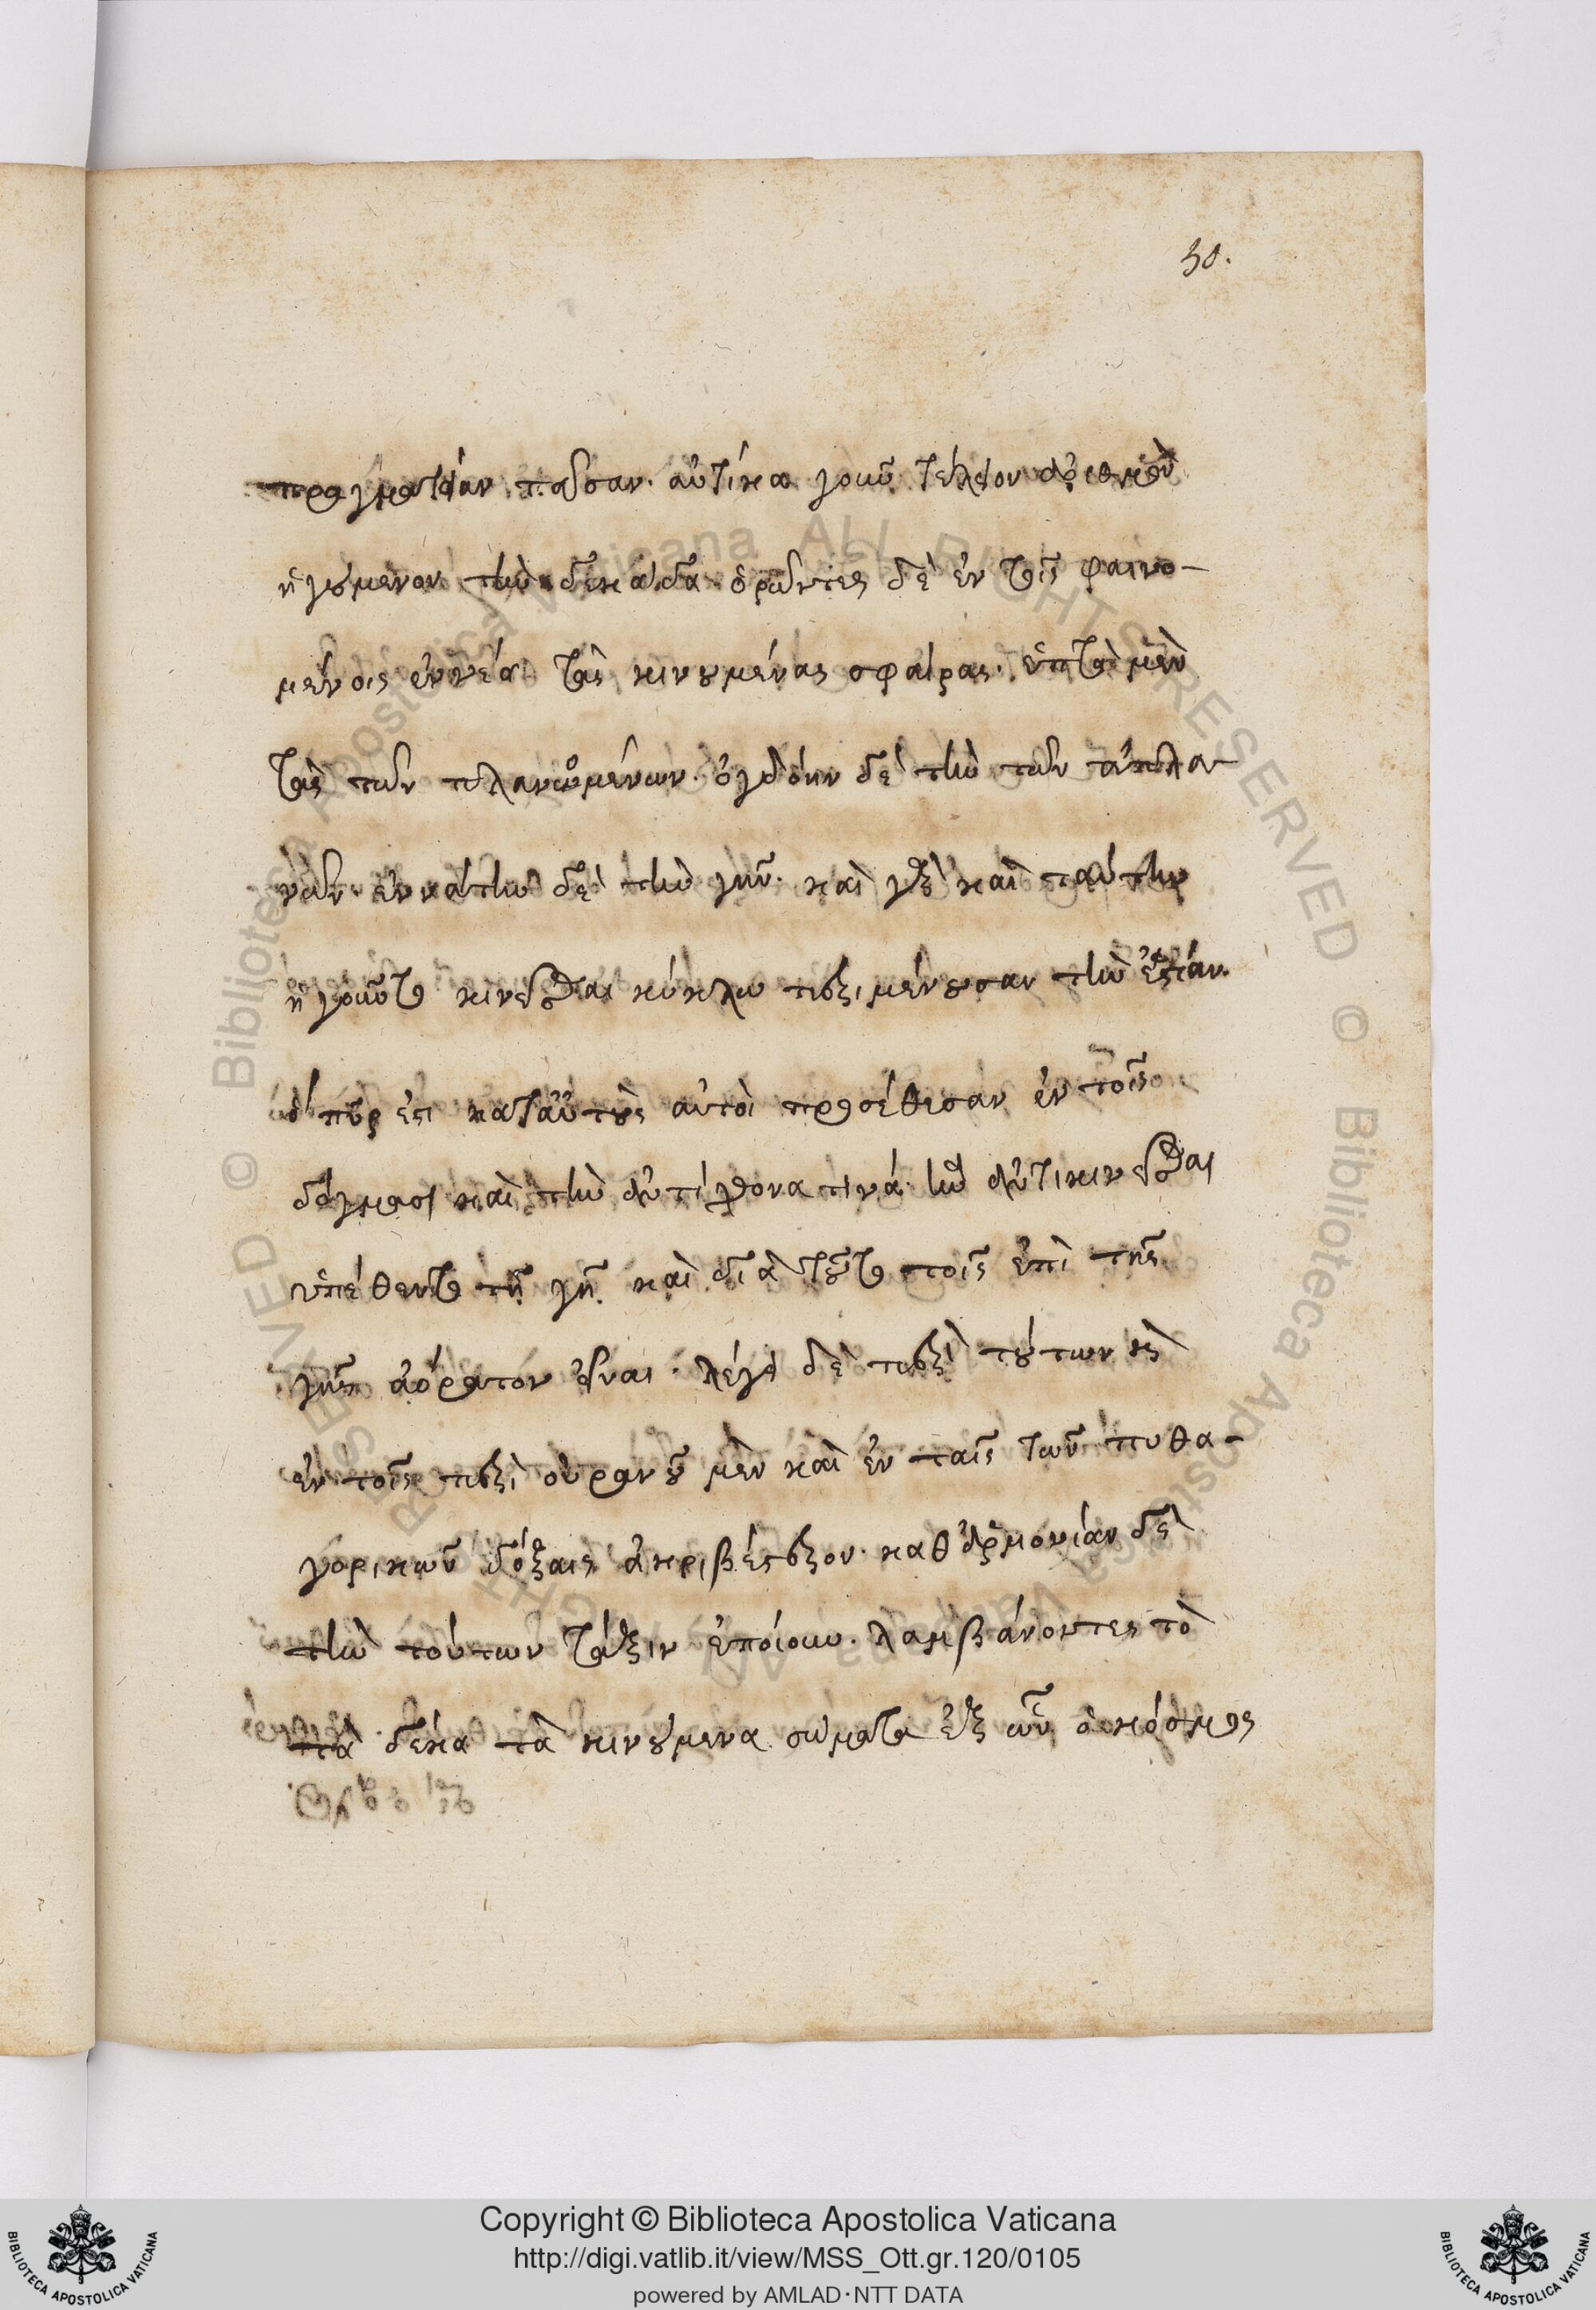 50.
πραγματείαν πᾶσαν. αὐτίκα γοῦν τέλειον ἀριθμὸν
ἡγούμενον τὴν δεκάδα. ὁρῶντες δὲ ἐν τοῖς φαινο-
μένοις ἐννέα τὰς κινουμένας σφαίρας. ἑπτὰ μὲν
τὰς τῶν πλανωμένων. ὀγδόην δὲ τὴν τῶν ἀπλα-
νῶν. ἐννάτην δὲ τὴν γῆν. καὶ γὰρ καὶ ταύτην
ἡγοῦντο κινεῖσθαι κύκλω περὶ μένουσαν τὴν ἑστίαν.
ὃ πῦρ ἐστι κατ' αὐτοὺς αὐτοὶ προσέθεσαν ἐν τοῖς
δόγμασι καὶ τὴν ἀντίχθονα τινά. ἣν ἀντικινεῖσθαι
ὑπέθεντο τῆ γῆ. καὶ διὰ τοῦτο τοῖς ἐπὶ τῆς
γῆς ἀόρατον εἶναι. λέγει δὲ περὶ τούτων κὶ
ἐν τοῖς περὶ οὐρανοῦ μὲν καὶ ἐν ταῖς τῶν πυθα-
γορικῶν δόξαις ἀκριβέστερον. καθ' ἁρμονίαν δὲ
τὴν τούτων τάξιν ἐποίουν. λαμβάνοντες τὸ
τὰ δέκα τὰ κινούμενα σώματα ἐξ ὧν ὁ κόσμος
Copyright © Biblioteca Apostolica Vaticana
http://digi.vatlib.it/view/MSS_Ott.gr.120/0105
powered by AMLAD·NTT DATA
BIBLIOTECA APOSTOLICA VATICANA
BIBLIOTECA APOSTOLICA VATICANA
© Biblioteca Apostolica Vaticana ALL RIGHTS RESERVED
© Biblioteca Apostolica Vaticana ALL RIGHTS RESERVED